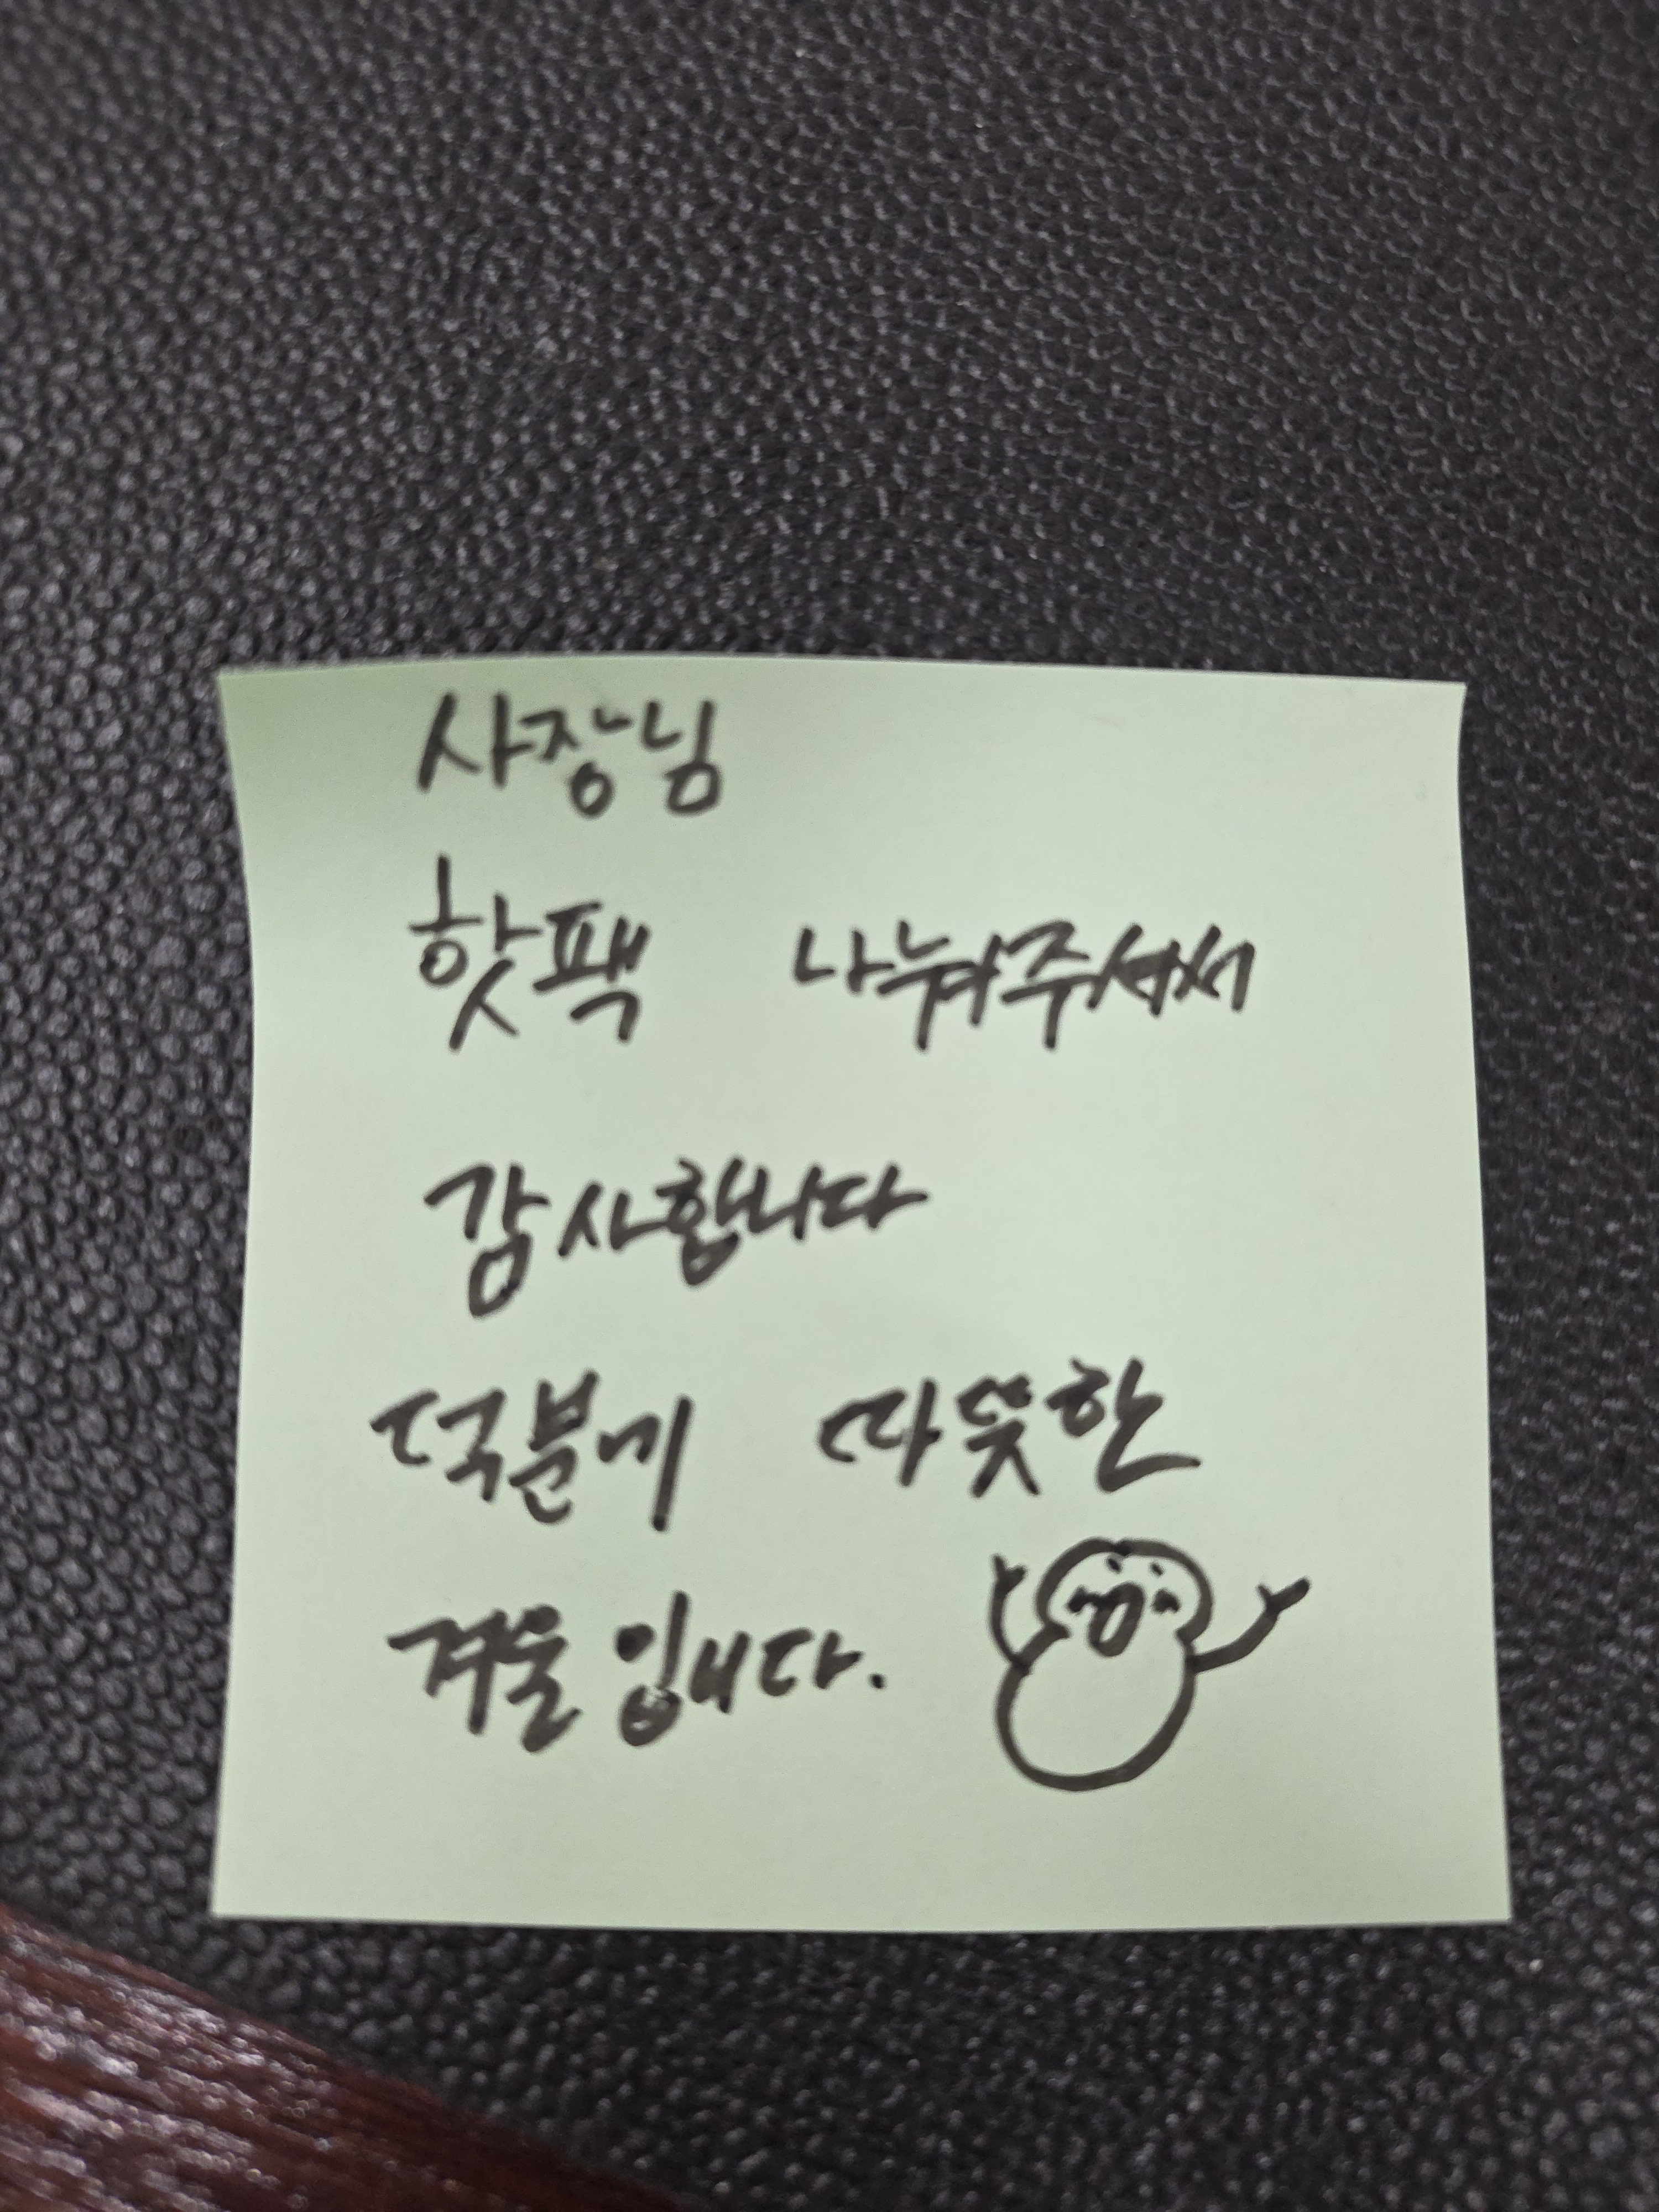 사장님
핫팩 나눠주셔서
감사합니다
덕분에 따뜻한
겨울입니다.